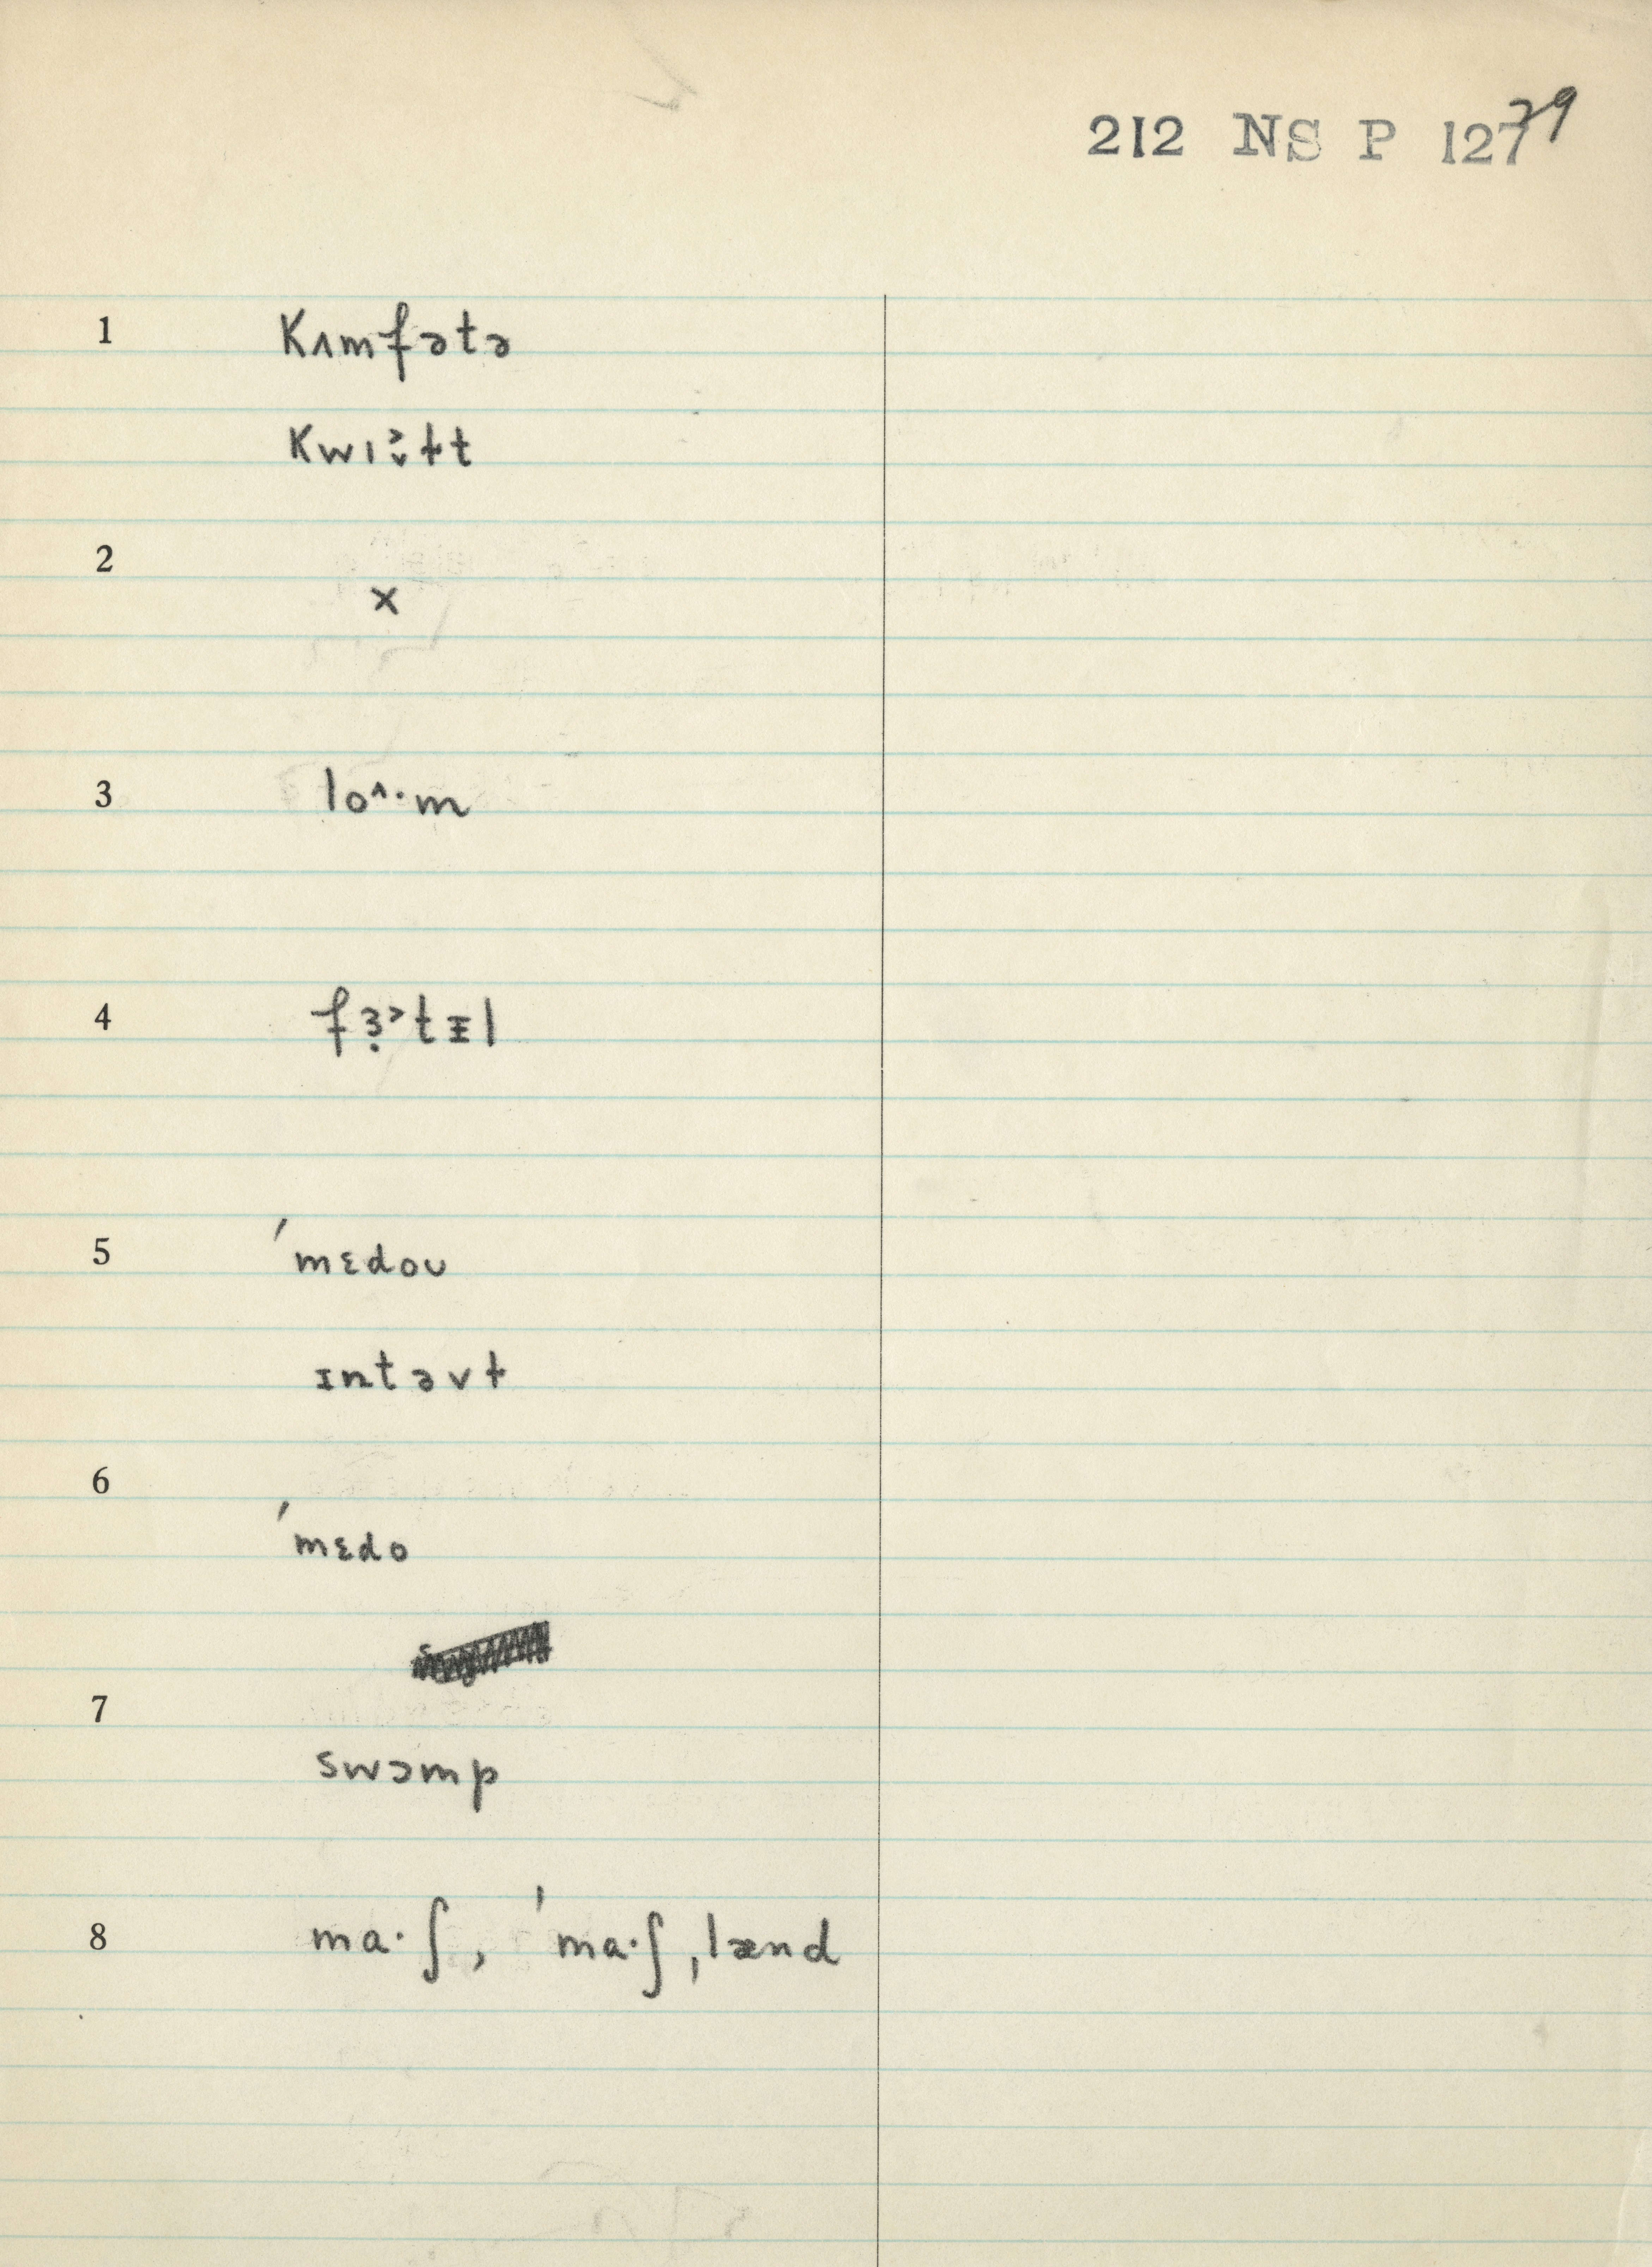 212 NS P 127
29
1 kʌmfətə
kwɪ
2
x
3 lo^·m
4 fɜ̣˃tᵻl
5 ˈmɛdoʊ
ɪntəvt
6
ˈmɛdo
7
swɔmp
8 ma·ʃ, ˈma·ʃˌlænd